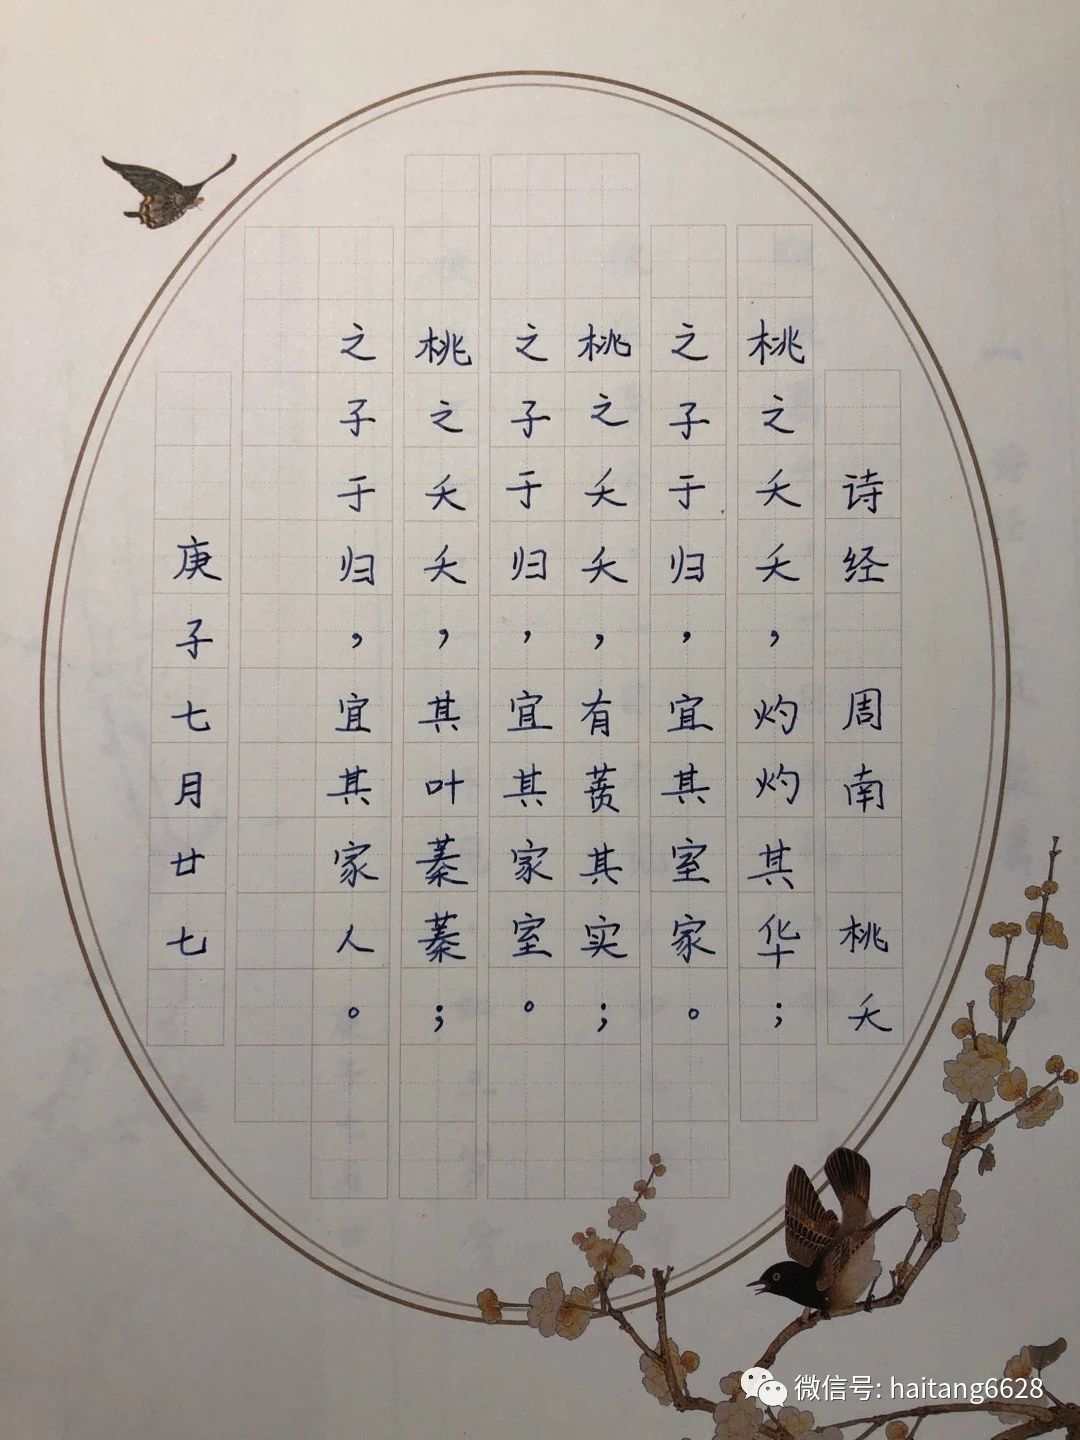 诗经 周南 桃夭
桃之夭夭，灼灼其华；
之子于归，宜其室家。
桃之夭夭，有蕡其实；
之子于归，宜其家室。
桃之夭夭，其叶蓁蓁；
之子于归，宜其家人。
庚子七月廿七
微信号: haitang6628